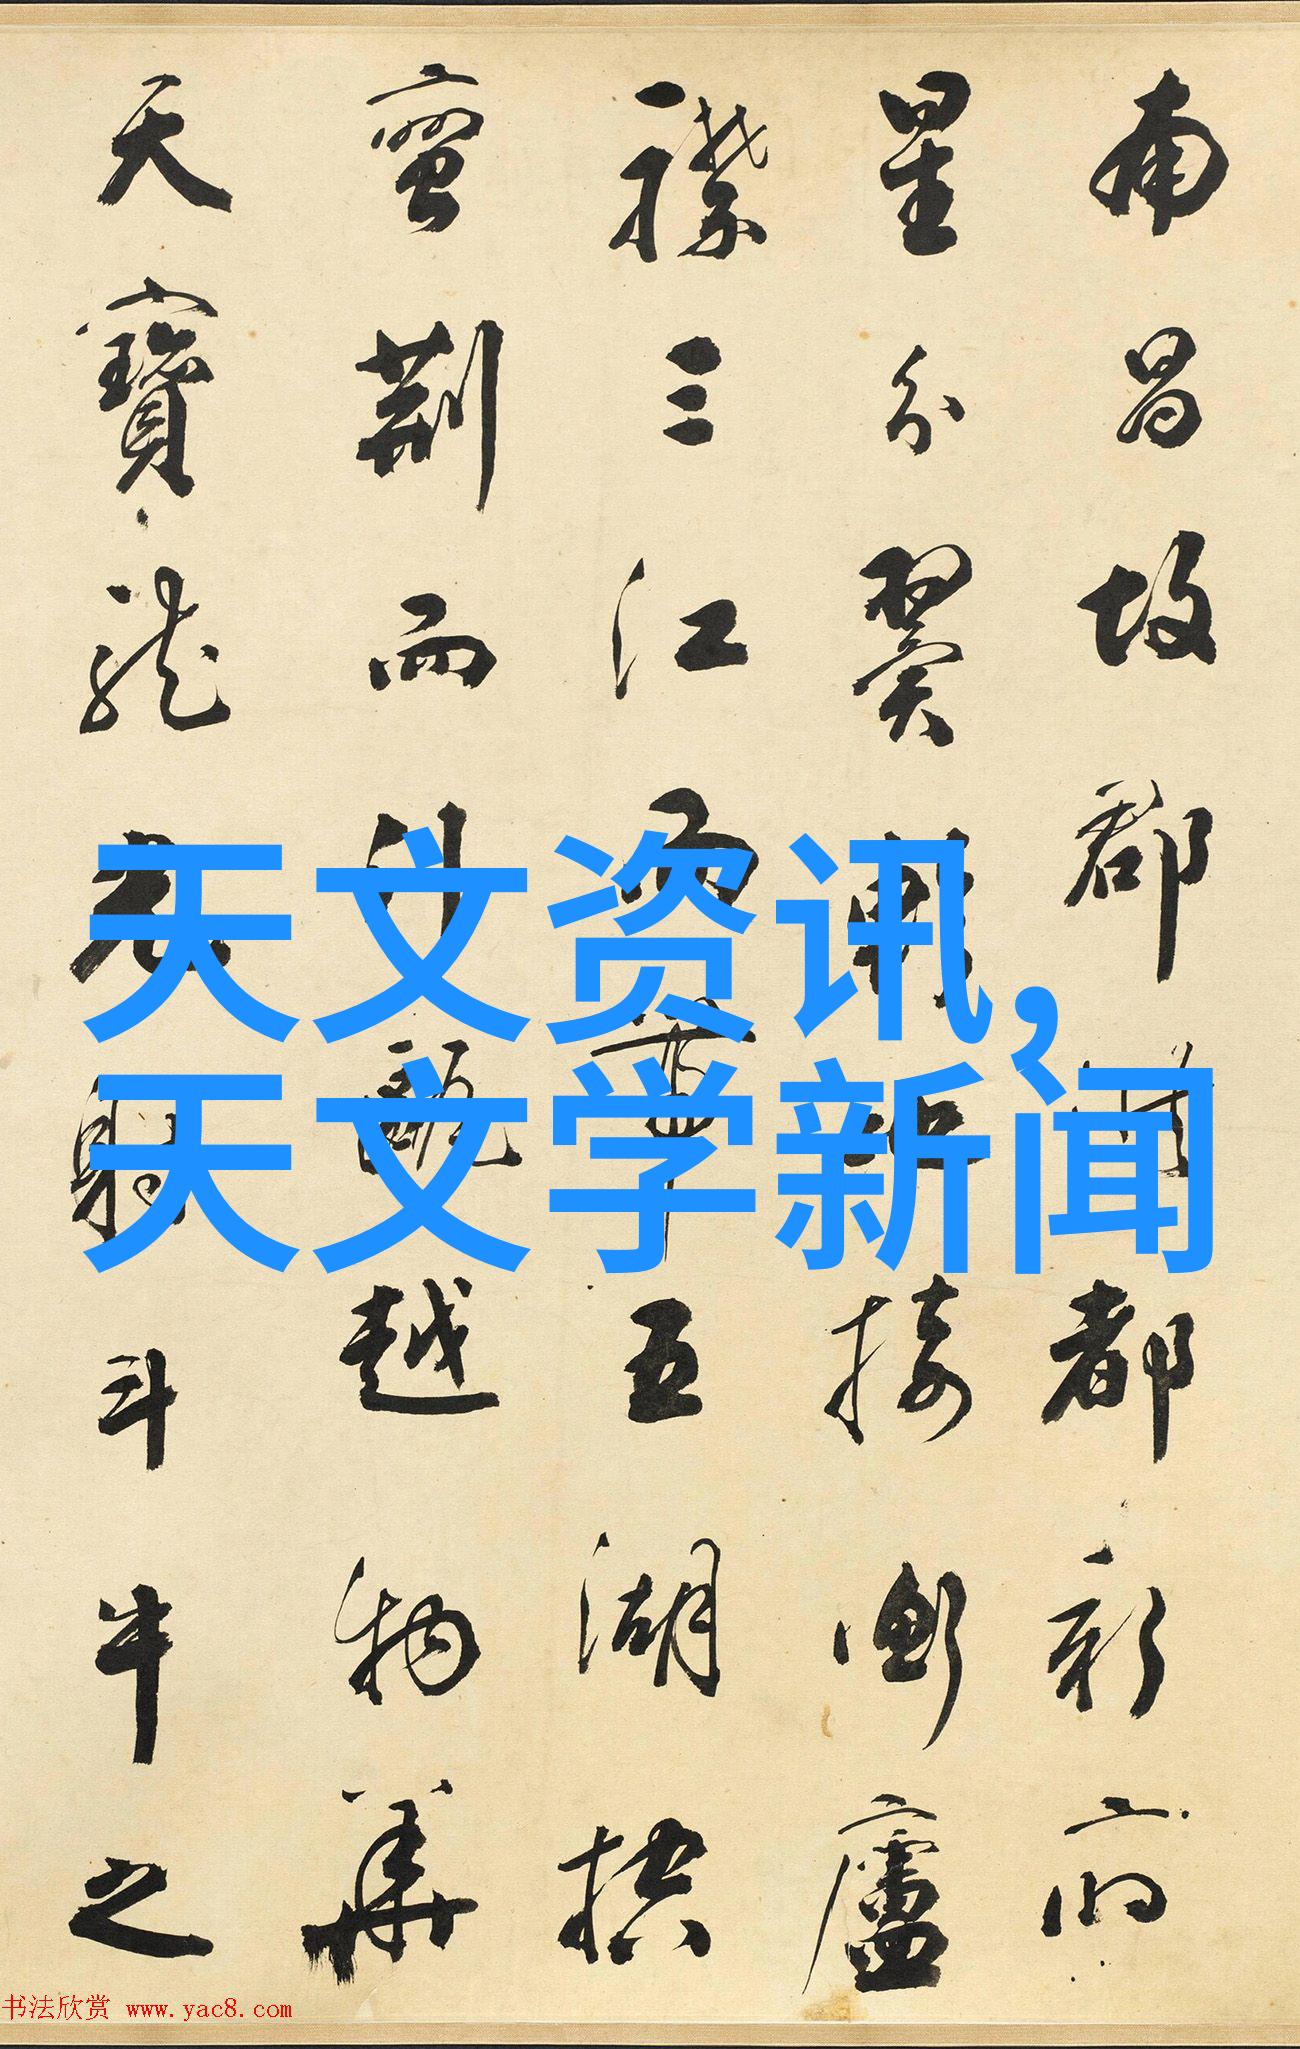 南昌故郡洪都新府
星分翼軫地接衡廬
襟三江而帶五湖控
蠻荊而引甌越物華
天寶龍光射斗牛之
天文资讯,
天文学新闻
书法欣赏 www.yac8.com